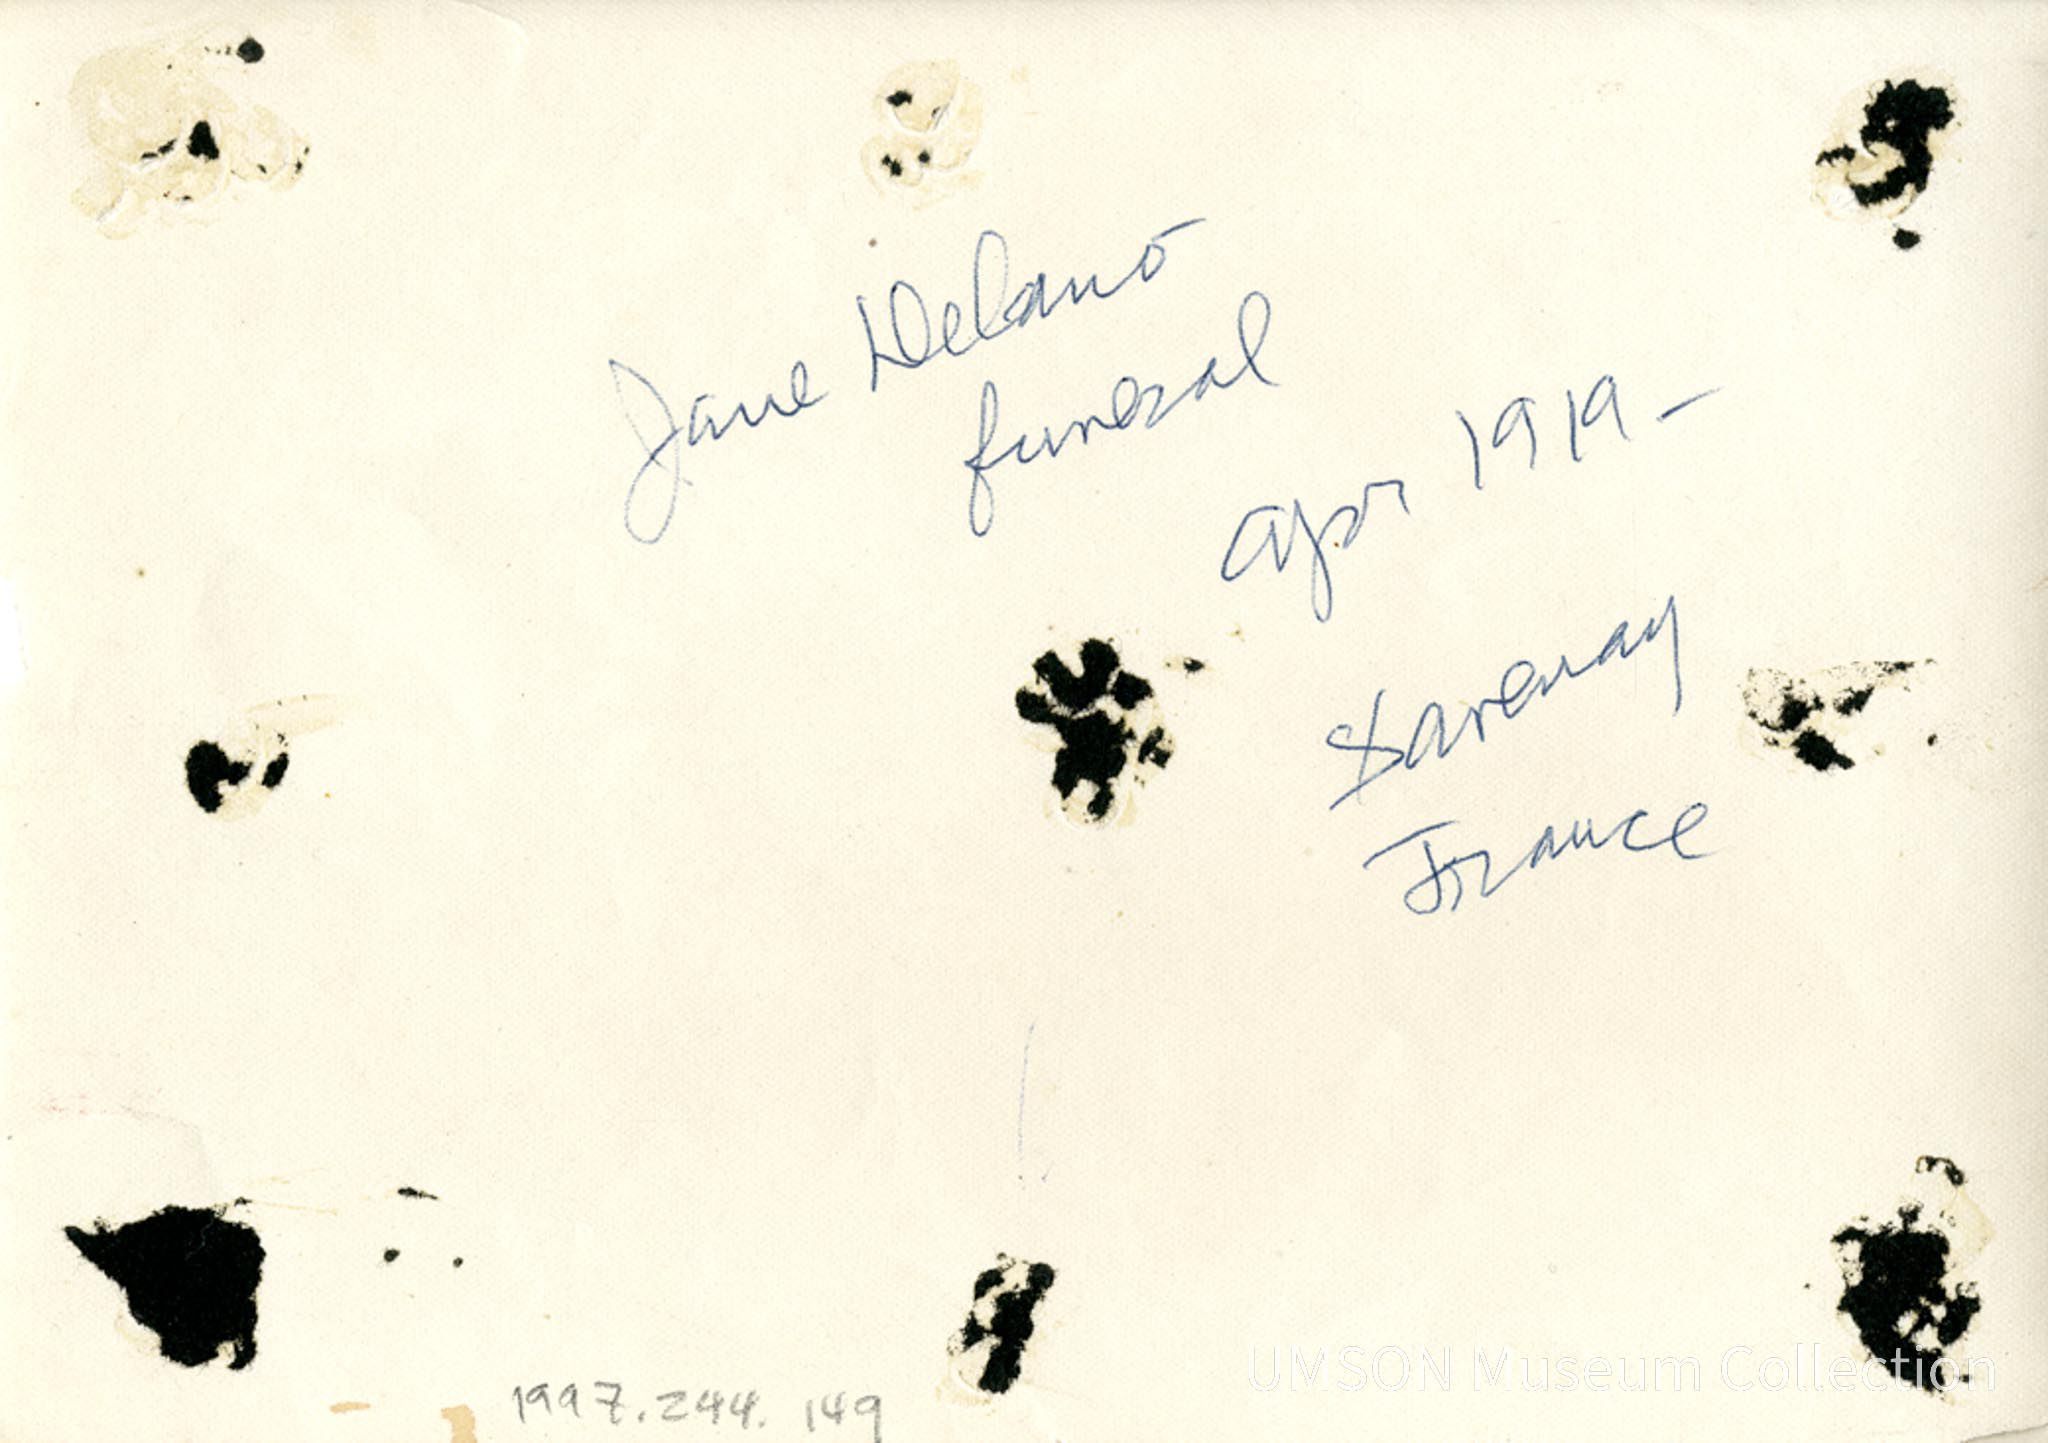 Jane Delano
funeral
Apr 1919-
Savenay
France
1997.244.149
UMSON Museum Collection